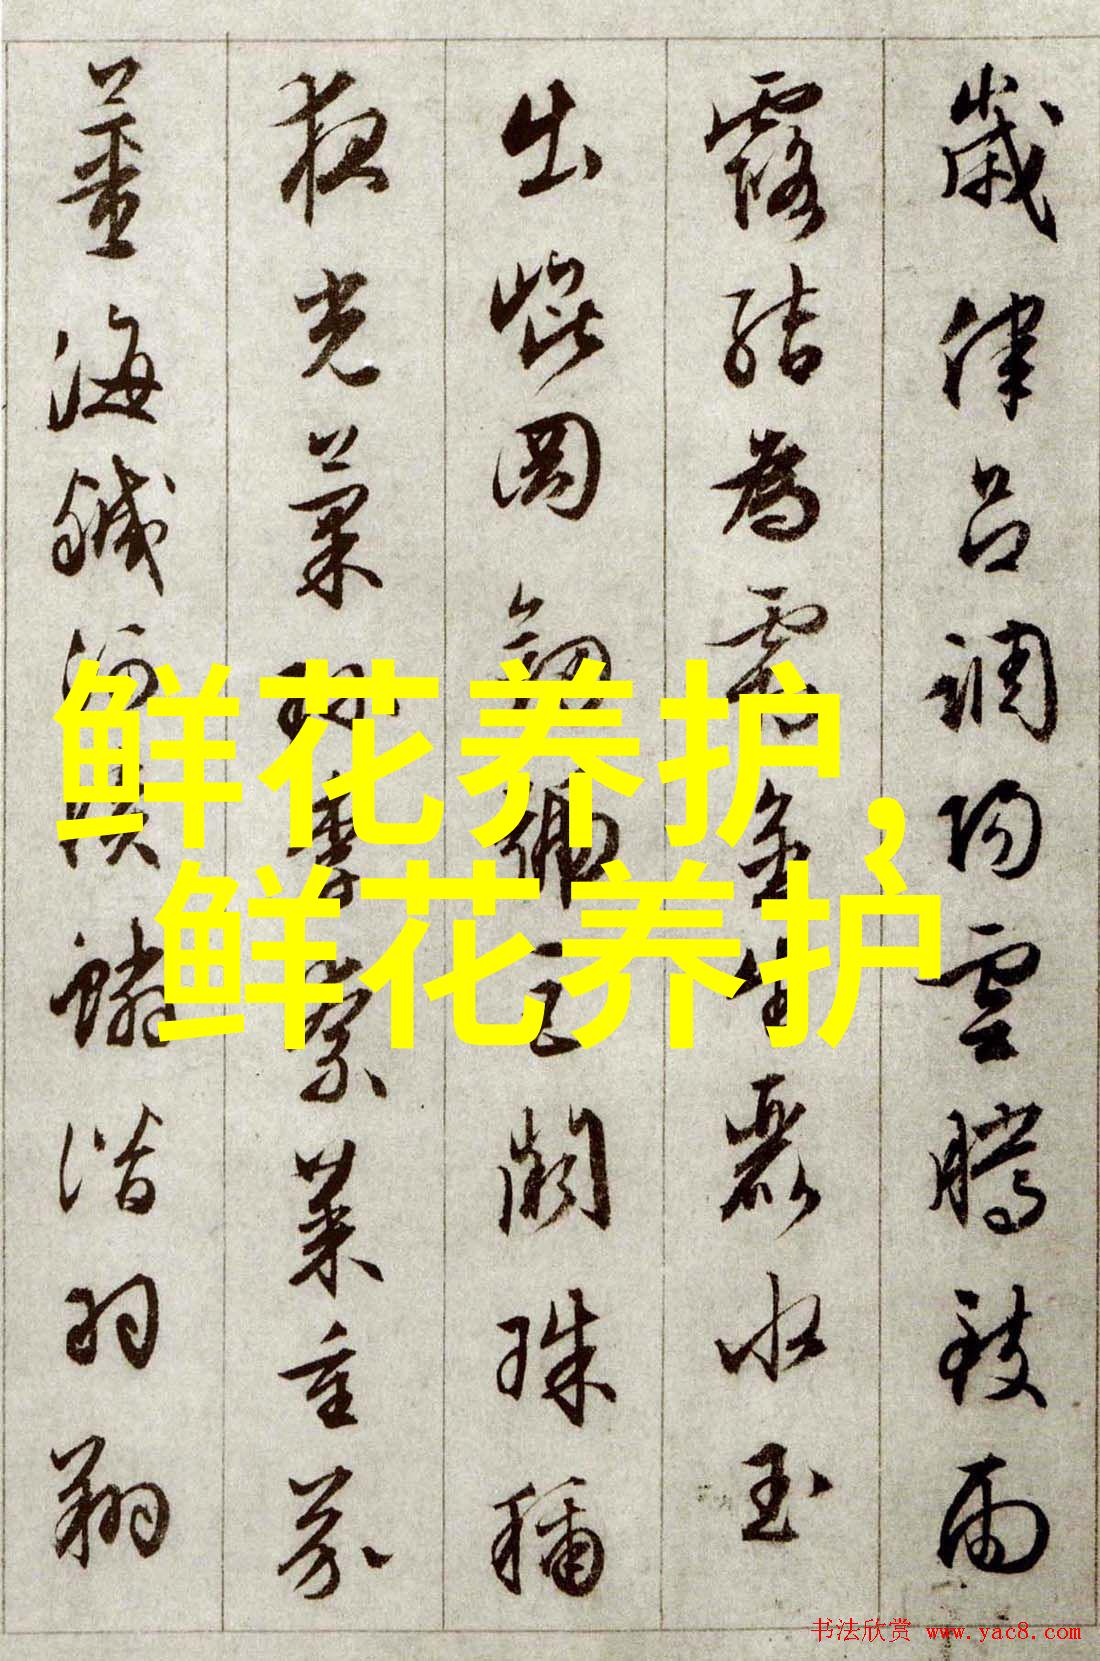 歲律呂調陽雲騰致雨
露結為霜金生麗水玉
出崐岡劍號巨闕珠稱
夜光菓珎李柰菜重芥
薑海鹹河淡鱗潛羽翔
鲜花养护，
鲜花养护
书法欣赏 www.yac8.com